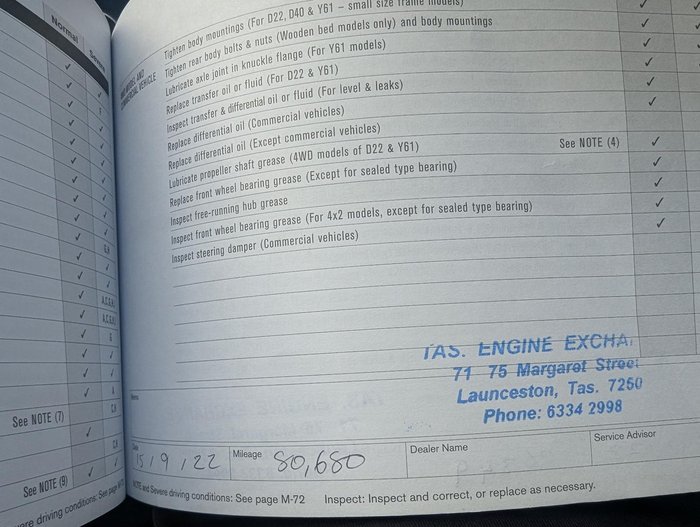 Normal
Severe
Tighten body mountings (For D22, D40 & Y61 – small size frame models)
Tighten rear body bolts & nuts (Wooden bed models only) and body mountings
Lubricate axle joint in knuckle flange (For Y61 models)
Replace transfer oil or fluid (For D22 & Y61)
Inspect transfer & differential oil or fluid (For level & leaks)
Replace differential oil (Commercial vehicles)
Replace differential oil (Except commercial vehicles)
Lubricate propeller shaft grease (4WD models of D22 & Y61) See NOTE (4)
Replace front wheel bearing grease (Except for sealed type bearing)
Inspect free-running hub grease
Inspect front wheel bearing grease (For 4x2 models, except for sealed type bearing)
Inspect steering damper (Commercial vehicles)
See NOTE (7)
See NOTE (9)
TAS. ENGINE EXCHA
71 75 Margaret Street
Launceston, Tas. 7250
Phone: 6334 2998
Date
15/9/22
Mileage
80,680
Dealer Name
Service Advisor
NOTE and Severe driving conditions: See page M-72
Inspect: Inspect and correct, or replace as necessary.